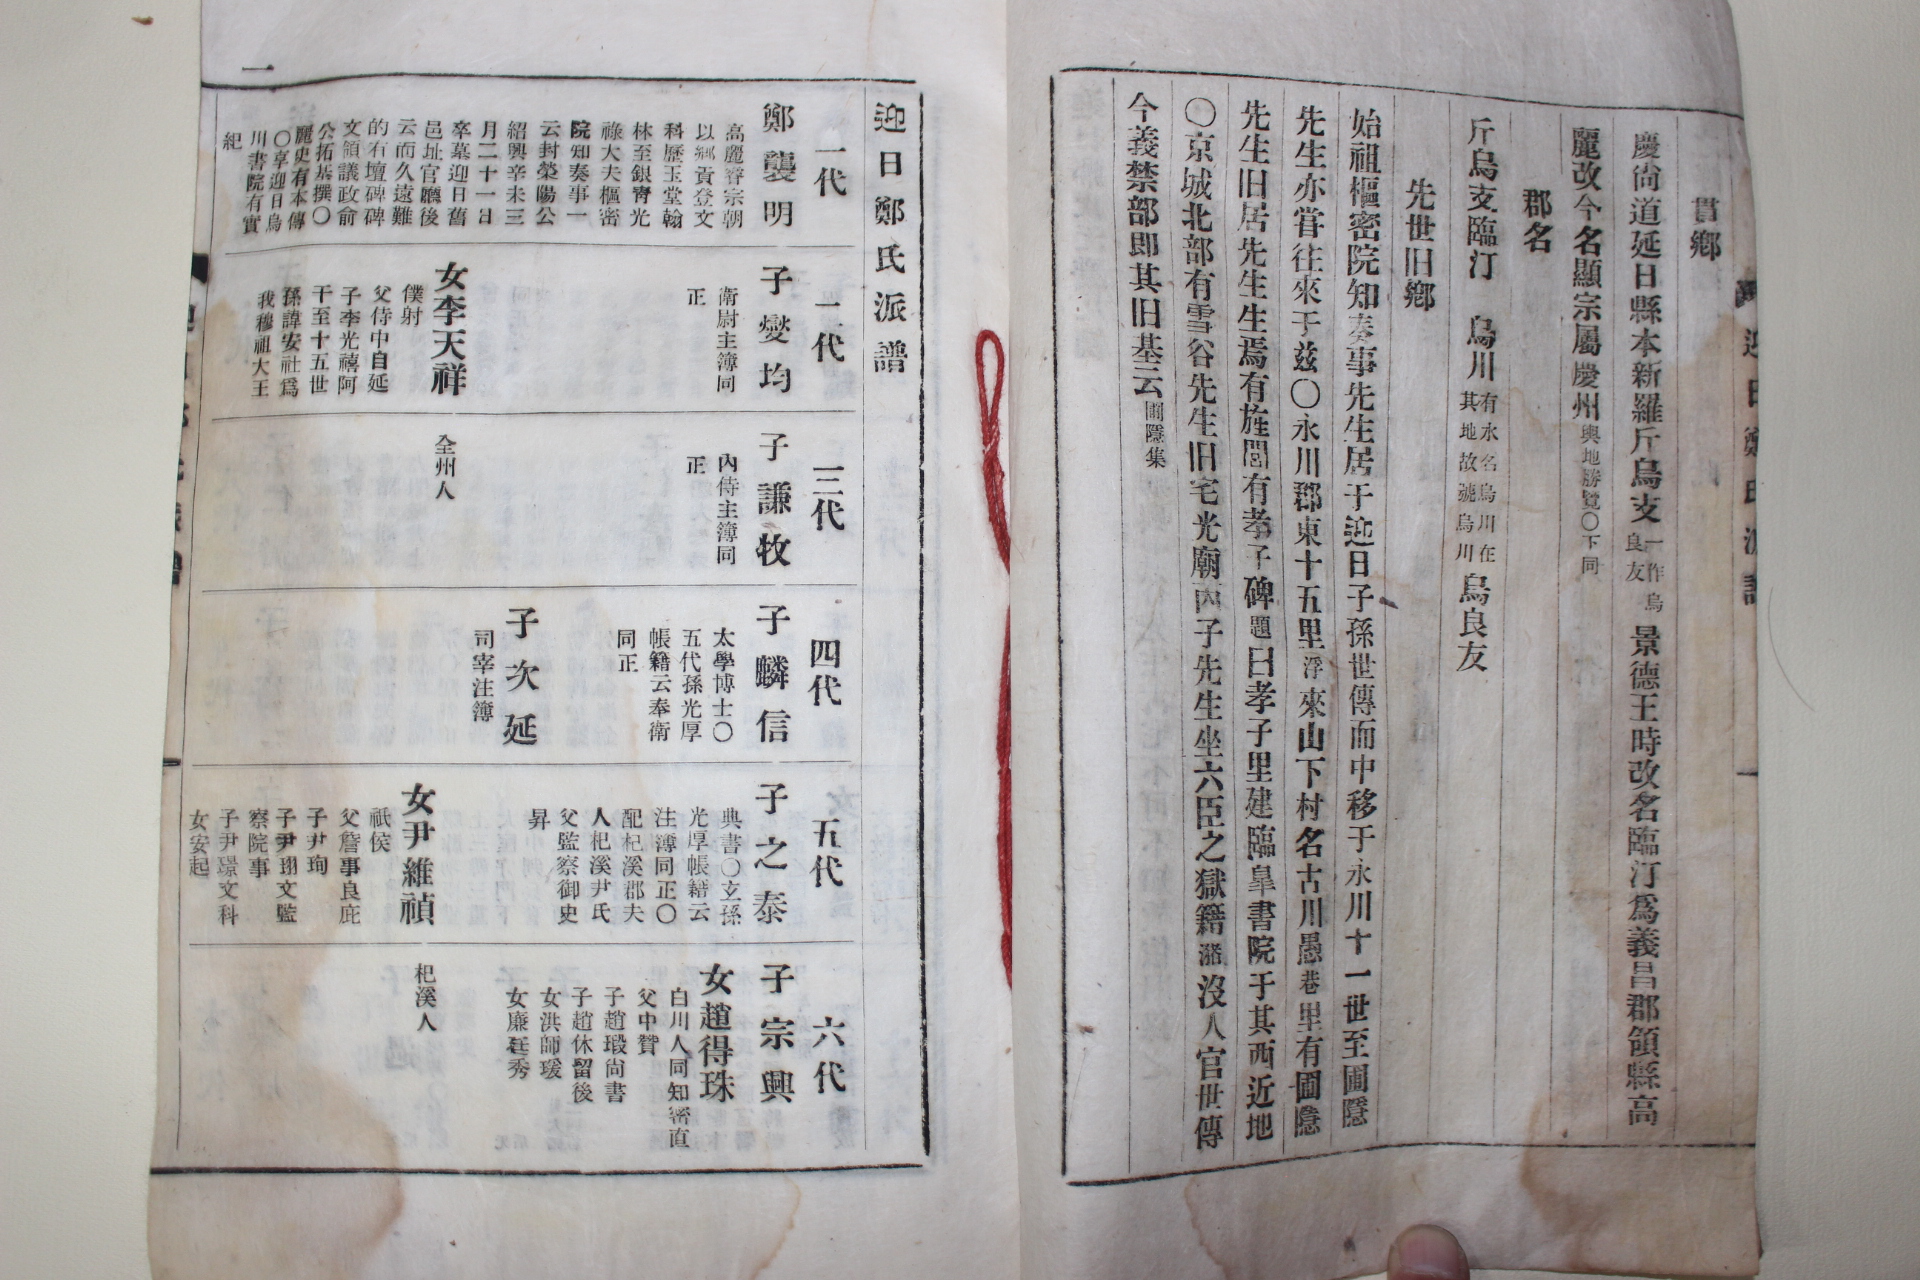 貫鄕
慶尙道延日縣本新羅斤烏支一作烏良友景德王時改名臨汀爲義昌郡領縣高
麗改今名顯宗屬慶州輿地勝覽〇下同
郡名
斤烏支臨汀 烏川有水名烏川在其地故號烏川烏良友
先世旧鄕
始祖樞密院知奏事先生居于迎日子孫世傳而中移于永川十一世至圃隱
先生亦嘗往來于玆〇永川郡東十五里浮來山下村名古川愚巷里有圃隱
先生旧居先生生焉有旌閭有孝子碑題曰孝子里建臨皐書院于其西近地
〇京城北部有雪谷先生旧宅光廟丙子先生坐六臣之獄籍瀦沒入官世傳
今義禁部即其旧基云圃隱集
迎日鄭氏派譜
一代
鄭襲明
高麗睿宗朝
以鄕貢登文
科歷玉堂翰
林至銀靑光
祿大夫樞密
院知奏事一
云封榮陽公
紹興辛未三
月二十一日
卒墓迎日舊
邑址官廳後
云而久遠難
的有壇碑碑
文領議政俞
公拓基撰〇
麗史有本傳
〇享迎日烏
川書院有實
紀
一代
子燮均
衛尉主簿同
正
女李天祥
僕射
父侍中自延
子李光禧阿
干至十五世
孫諱安社爲
我穆祖大王
三代
子謙牧
內侍主簿同
正
全州人
四代
子麟信
太學博士〇
五代孫光厚
帳籍云奉衛
同正
子次延
司宰注簿
五代
子之泰
典書〇玄孫
光厚帳籍云
注簿同正〇
配杞溪郡夫
人杞溪尹氏
父監察御史
昇
女尹維禎
祇侯
父詹事良庇
子尹珣
子尹珝文監
察院事
子尹璟文科
女安起
六代
子宗興
女趙得珠
白川人同知密直
父中贊
子趙瑕尙書
子趙休留後
女洪師瑗
女廉廷秀
杞溪人
一